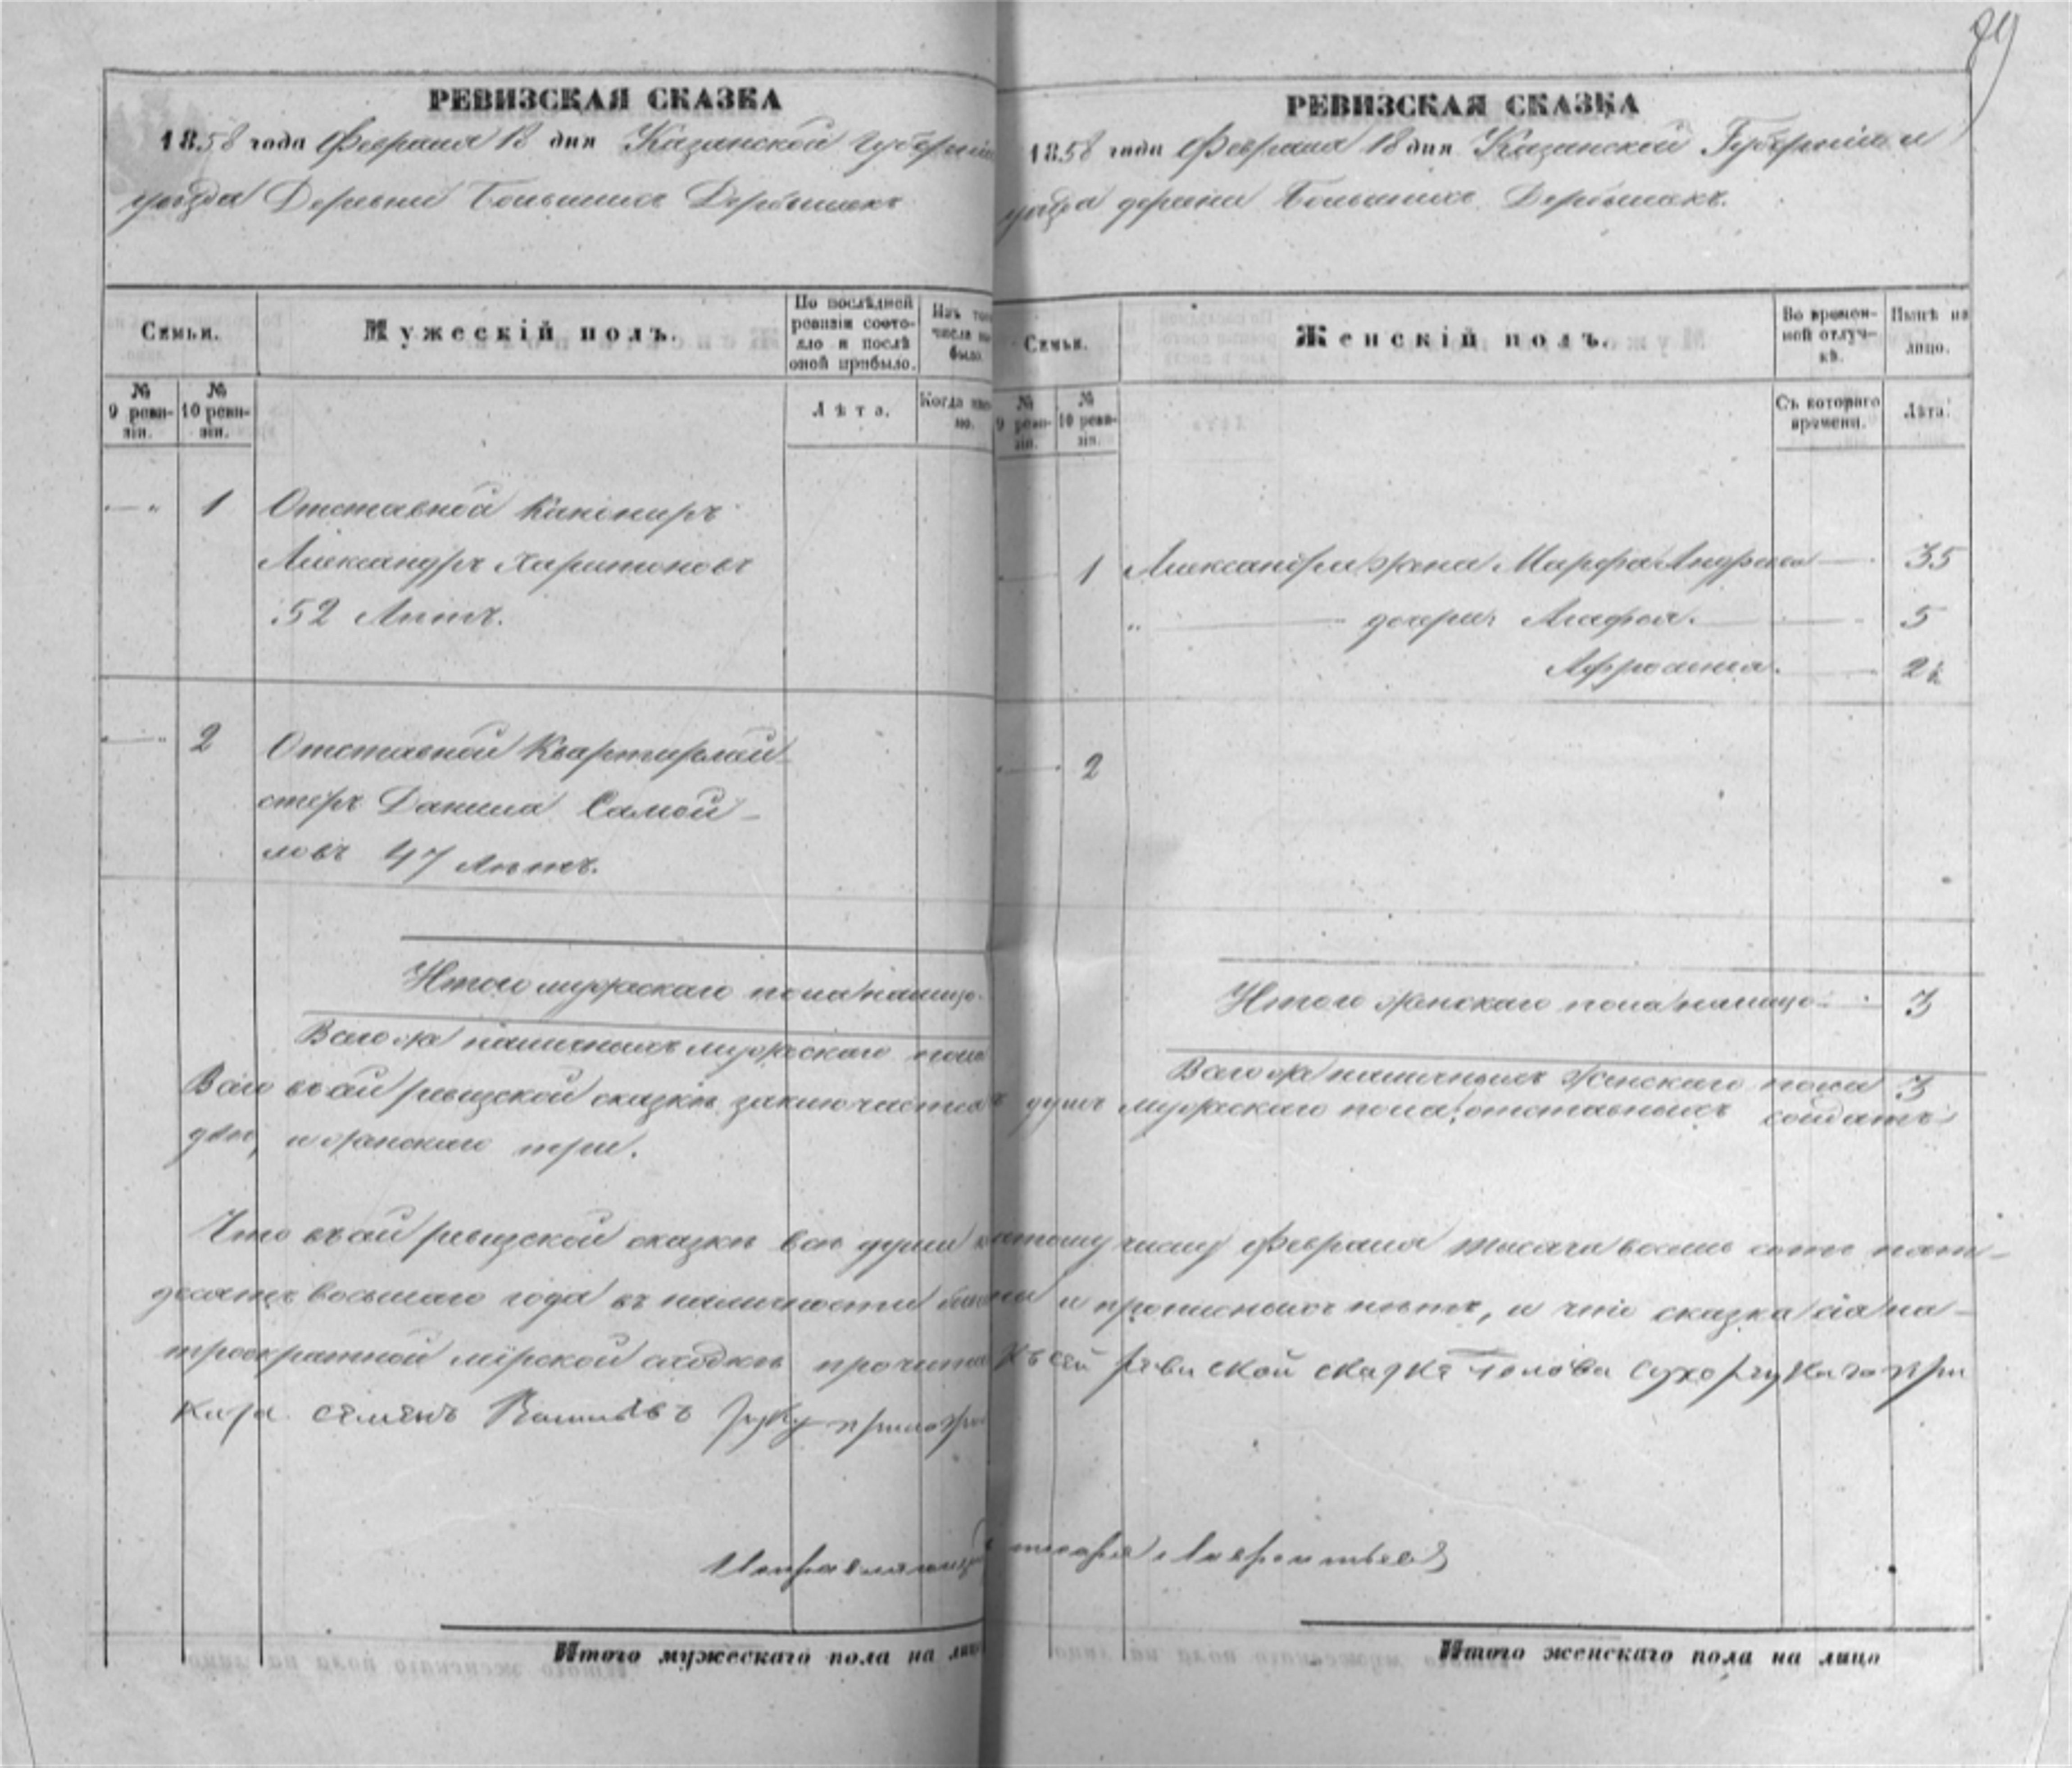 РЕВИЗСКАЯ СКАЗКА
1858 года Февраля 18 дня Казанской губерніи
уѣзда Деревни Большихъ Дербышекъ
Семьи.
Мужескій полъ.
По послѣдней ревизіи состояло и послѣ оной прибыло.
Изъ того числа выбыло.
№ 9 ревизіи.
№ 10 ревизіи.
Лѣта.
Когда именно.
1 Отставной Канониръ
Александръ Харитоновъ
52 Лѣтъ.
2 Отставной Квартирмей-
стеръ Данила Самой-
ловъ 47 лѣтъ.
Итого мужескаго пола налицо
Всего же наличныхъ мужескаго пола
РЕВИЗСКАЯ СКАЗКА
1858 года Февраля 18 дня Казанской Губерніи и
уѣзда деревни Большихъ Дербышекъ.
Семьи.
Женскій полъ.
Во временной отлучкѣ.
Нынѣ на лицо.
№ 9 ревизіи.
№ 10 ревизіи.
Съ котораго времени.
Лѣта.
1 Александра жена Марфа Андреева 35
" дочери Агафья. 5
Афросинья. 2½
2
Итого женскаго пола налицо 3
Всего же наличныхъ Женскаго пола 3
Всего въ сей ревизской сказкѣ заключается душъ мужескаго пола отставныхъ солдатъ
двѣ, и женскаго три.
Что въ сей ревизской сказкѣ всѣ души числу Февраля тысяча восемь сотъ пять-
десятъ восьмаго года въ наличности были и прописныхъ нѣтъ, и что сказка сія на
троекратной мірской сходкѣ прочитана Къ сей ревиской сказке голова сухорукаго при
каза семенъ руку приложилъ
Исправляющій Лаврентьевъ
Итого мужескаго пола на лицо
Итого женскаго пола на лицо